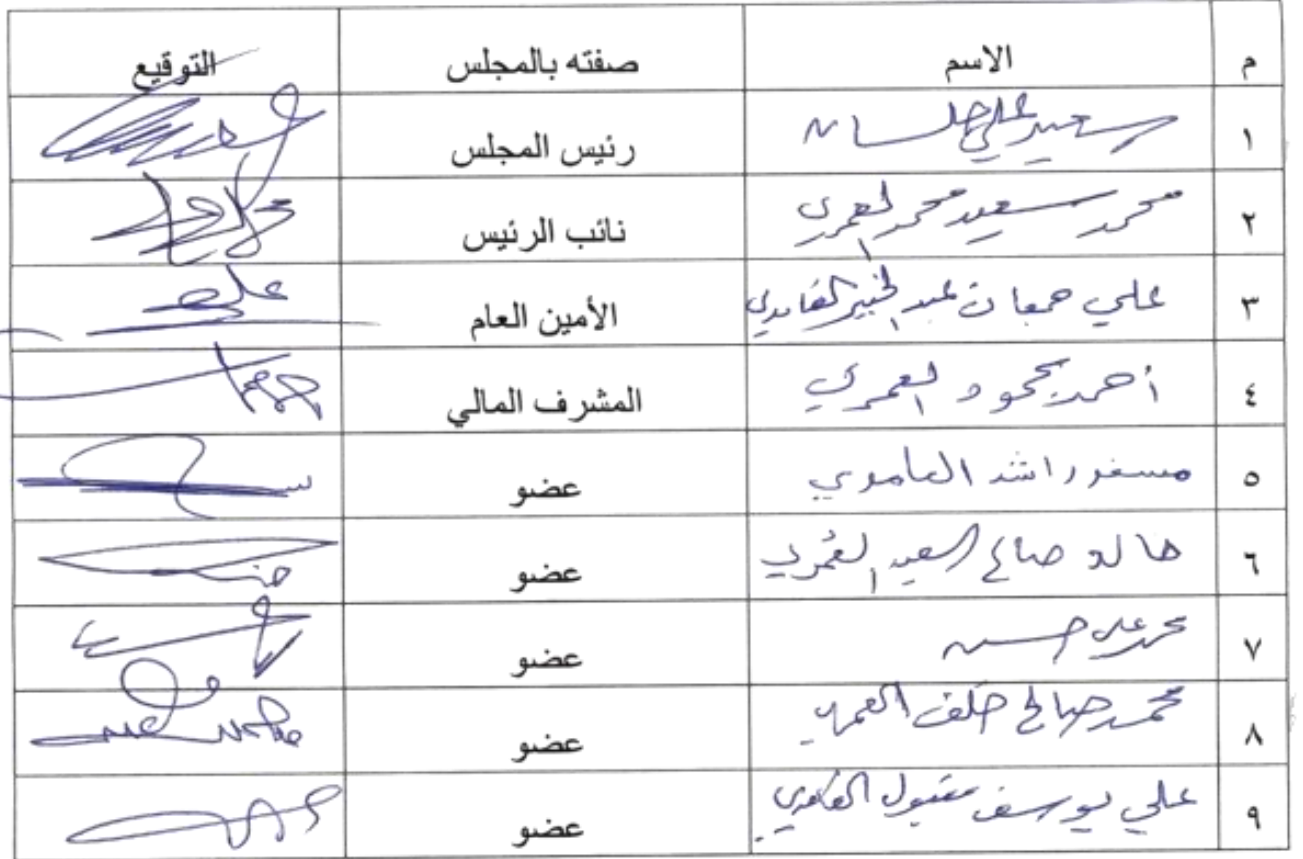 م الاسم صفته بالمجلس التوقيع
١ سعيد علي رئيس المجلس
٢ محمد سعيد محمد العمري نائب الرئيس
٣ علي جمعان عبد الخبير الغامدي الأمين العام
٤ أحمد محمود العمري المشرف المالي
٥ مسفر راشد الغامدي عضو
٦ خالد صالح السعيد العمري عضو
٧ محمد علي حسن عضو
٨ محمد صالح خلف العمري عضو
٩ علي يوسف مقبول الغامدي عضو